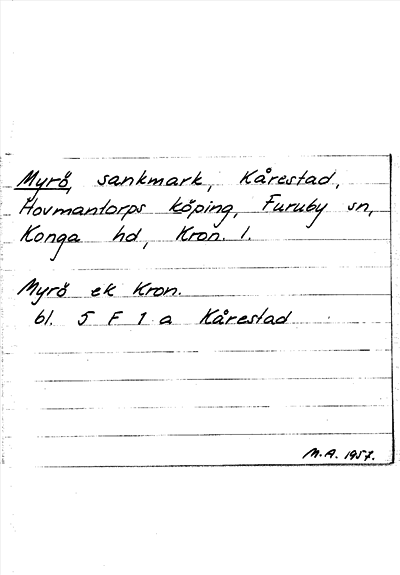 Myrö, sankmark, Kårestad,
Hovmantorps köping, Furuby sn,
Konga hd, Kron. l.
Myrö ek Kron.
bl. 5 F 1 a Kårestad
M.A. 1957.